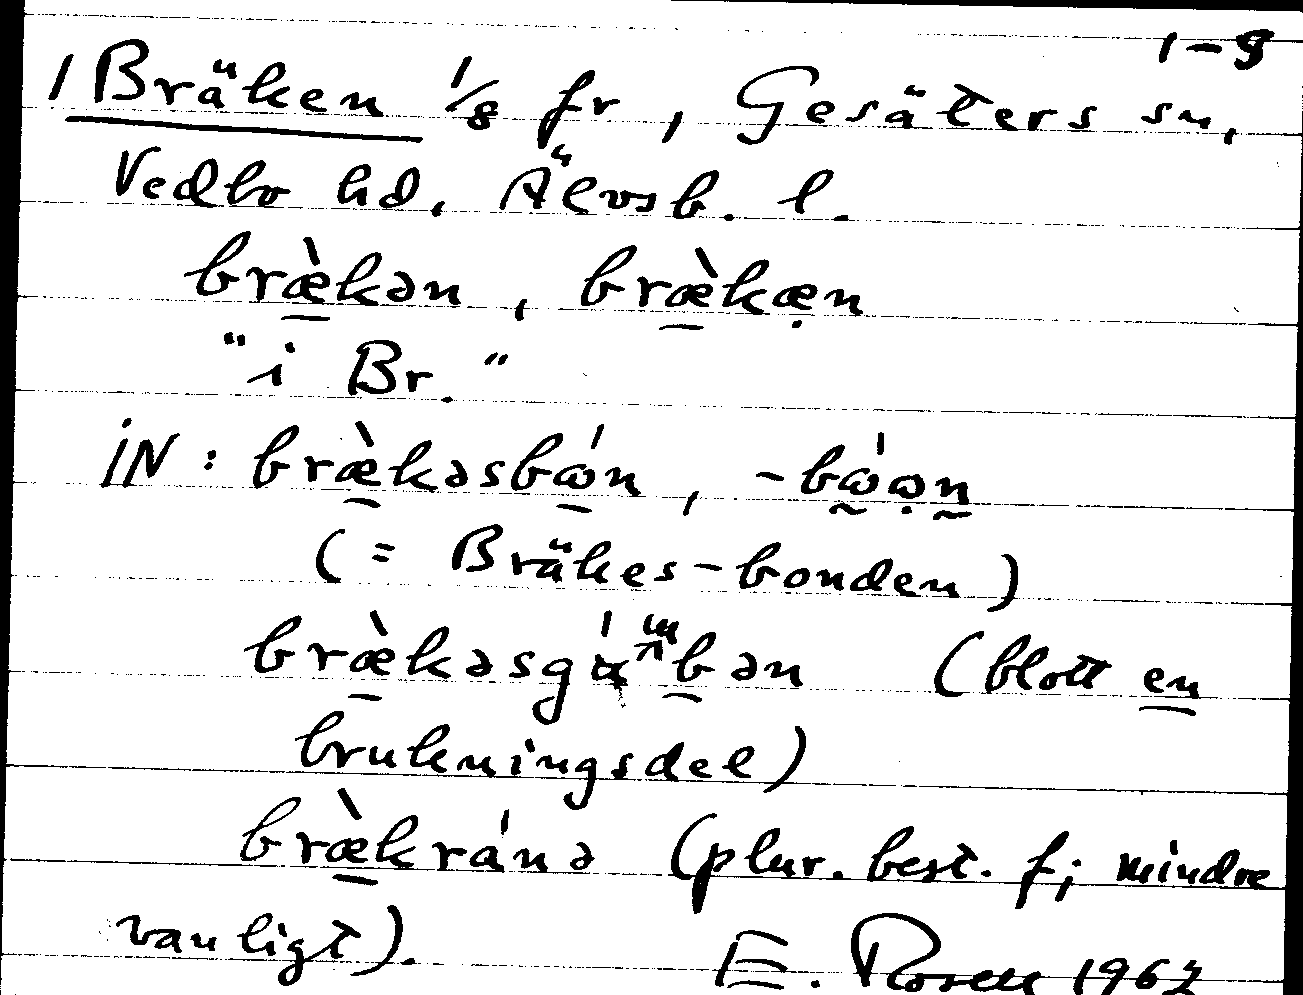 1-9
1 Bräken 1/8 fr, Gesäters sn,
Vedbo hd. Älvsb. l.
bræ̱̀kən, bræ̱̀kæ̣n
"i Br."
iN: bræ̱̀kəsbώ̱n, -bώ̰ω̣n̰
(= Bräkes-bonden)
bræ̱̀kəsgá ḇən (blott en
brukningsdel)
bræ̱̀kránə (plur. best. f; mindre
vanligt).
E. Rosell 1962